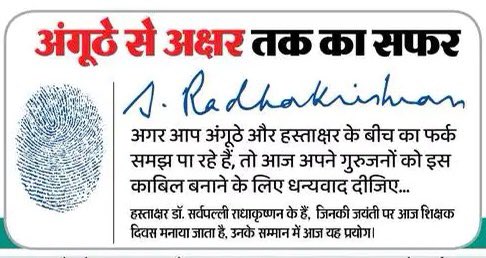 अंगूठे से अक्षर तक का सफर
S. Radhakrishnan
अगर आप अंगूठे और हस्ताक्षर के बीच का फर्क
समझ पा रहे हैं, तो आज अपने गुरुजनों को इस
काबिल बनाने के लिए धन्यवाद दीजिए...
हस्ताक्षर डॉ. सर्वपल्ली राधाकृष्णन के हैं, जिनकी जयंती पर आज शिक्षक
दिवस मनाया जाता है, उनके सम्मान में आज यह प्रयोग।